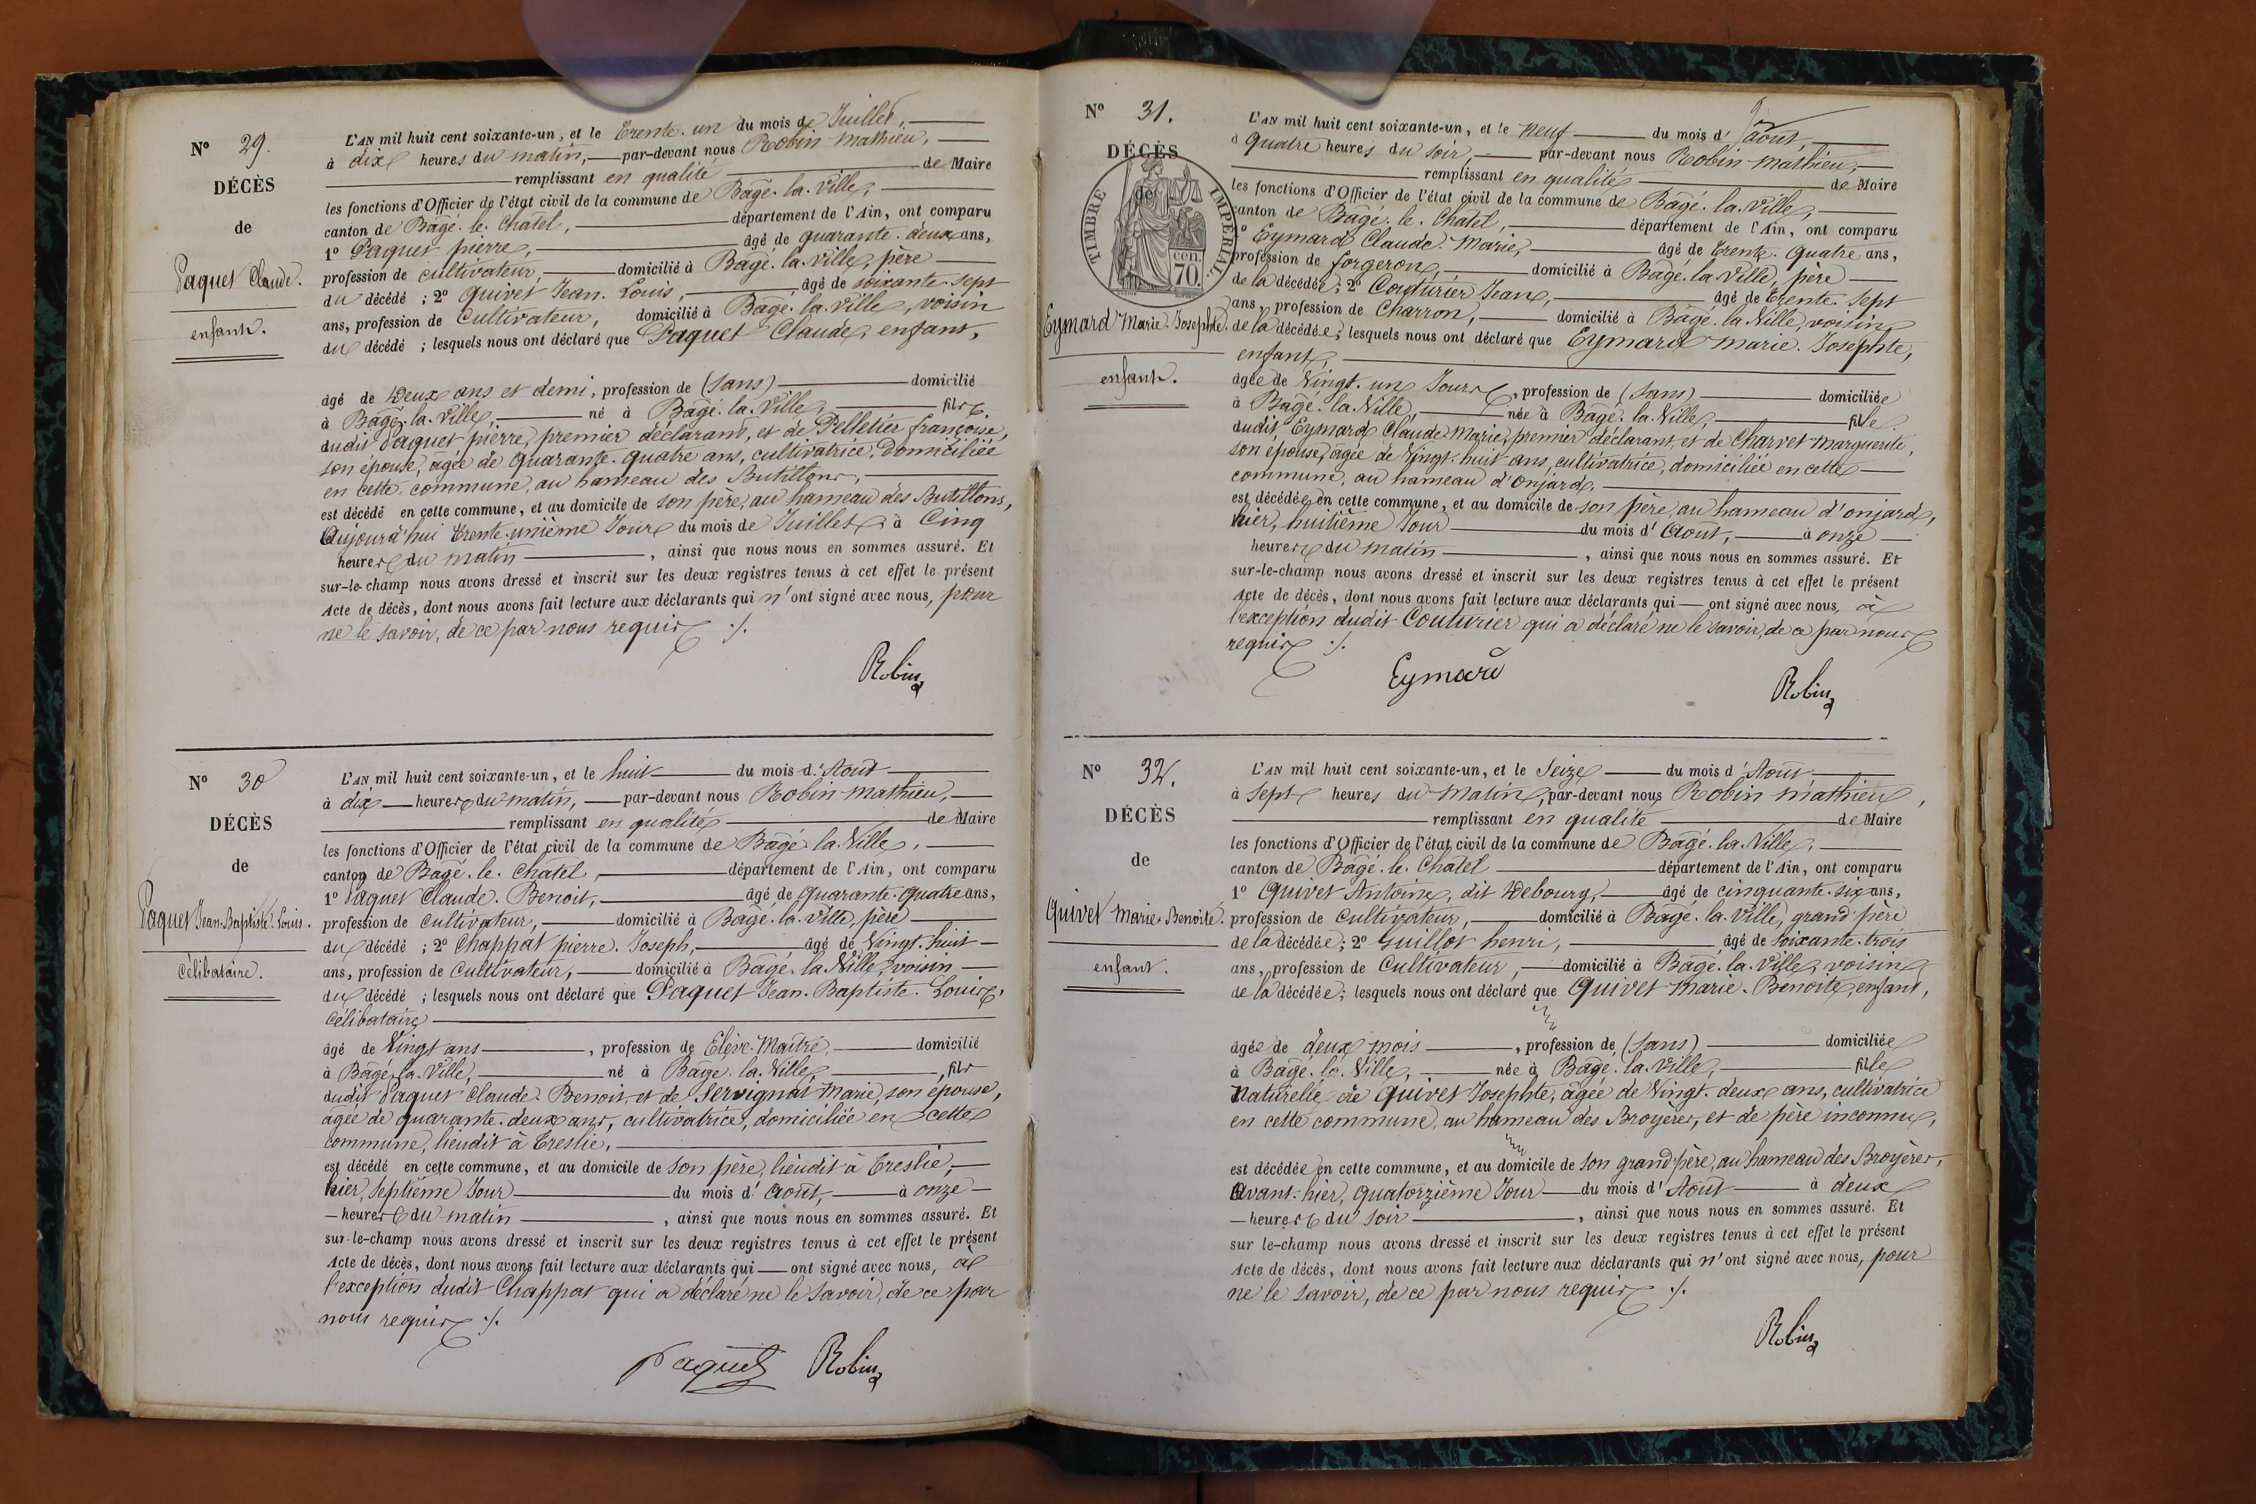 N° 29.
DÉCÈS
de
Paquet Claude.
enfant.
L'AN mil huit cent soixante-un, et le Trente-un du mois de Juillet,
à dix heures du matin, par-devant nous Robin Mathieu,
remplissant en qualité de Maire
les fonctions d'Officier de l'état civil de la commune de Bâgé-la-Ville,
canton de Bâgé-le-Chatel, département de l'Ain, ont comparu
1° Paquet pierre, âgé de quarante-deux ans,
profession de cultivateur, domicilié à Bâgé-la-Ville, père
du décédé ; 2° Quivet Jean-Louis, âgé de soixante-sept
ans, profession de Cultivateur, domicilié à Bâgé-la-Ville, voisin
du décédé ; lesquels nous ont déclaré que Paquet Claude, enfant,
âgé de Deux ans et demi, profession de (sans) domicilié
à Bâgé-la-Ville né à Bâgé-la-Ville, fils
dudit Paquet pierre, premier déclarant, et de Pelletier françoise,
son épouse, âgée de quarante-quatre ans, cultivatrice, domiciliée
en cette commune, au hameau des Butillons,
est décédé en cette commune, et au domicile de son père, au hameau des Butillons,
Aujourd'hui trente-unième Jour du mois de Juillet, à Cinq
heures du matin, ainsi que nous nous en sommes assuré. Et
sur-le-champ nous avons dressé et inscrit sur les deux registres tenus à cet effet le présent
Acte de décès, dont nous avons fait lecture aux déclarants qui n'ont signé avec nous, pour
ne le savoir, de ce par nous requis ./.
Robin
N° 30
DÉCÈS
de
Paquet Jean-Baptiste-Louis.
célibataire.
L'AN mil huit cent soixante-un, et le huit du mois d'Aout
à dix heures du matin, par-devant nous Robin Mathieu,
remplissant en qualité de Maire
les fonctions d'Officier de l'état civil de la commune de Bâgé-la-Ville,
canton de Bâgé-le-Chatel, département de l'Ain, ont comparu
1° Paquet Claude-Benoit, âgé de quarante-quatre ans,
profession de cultivateur, domicilié à Bâgé-la-Ville, père
du décédé ; 2° Chappat pierre-Joseph, âgé de Vingt-huit
ans, profession de Cultivateur, domicilié à Bâgé-la-Ville, voisin
du décédé ; lesquels nous ont déclaré que Paquet Jean-Baptiste-Louis,
Célibataire
âgé de Vingt ans, profession de Elève-Maître, domicilié
à Bâgé-la-Ville, né à Bâgé-la-Ville, fils
dudit Paquet Claude-Benoit, et de Servignat Marie, son épouse,
agée de quarante-deux ans, cultivatrice, domiciliée en cette
commune, lieudit à Treslie,
est décédé en cette commune, et au domicile de son père, lieudit à Treslie,
hier, septième Jour du mois d'Août, à onze
heures du matin, ainsi que nous nous en sommes assuré. Et
sur-le-champ nous avons dressé et inscrit sur les deux registres tenus à cet effet le présent
Acte de décès, dont nous avons fait lecture aux déclarants qui ont signé avec nous, à
l'exception dudit Chappat qui a déclaré ne le savoir, de ce par
nous requis ./.
Paquet Robin
N° 31.
DÉCÈS
de
TIMBRE IMPÉRIAL
cen.
70.
Eymard Marie-Josephte.
enfant.
L'AN mil huit cent soixante-un, et le neuf du mois d'août,
à quatre heures du soir, par-devant nous Robin Mathieu,
remplissant en qualité de Maire
les fonctions d'Officier de l'état civil de la commune de Bâgé-la-Ville,
canton de Bâgé-le-Chatel, département de l'Ain, ont comparu
1° Eymard Claude-Marie, âgé de trente-quatre ans,
profession de forgeron, domicilié à Bâgé-la-Ville, père
de la décédée ; 2° Couturier Jean, âgé de trente-sept
ans, profession de Charron, domicilié à Bâgé-la-Ville, voisin
de la décédée ; lesquels nous ont déclaré que Eymard Marie-Josephte,
enfant,
âgée de Vingt-un Jours, profession de (sans) domiciliée
à Bâgé-la-Ville, née à Bâgé-la-Ville, fille
dudit Eymard Claude-Marie, premier déclarant, et de Charvet Marguerite,
son épouse, âgée de Vingt-huit ans, cultivatrice, domiciliée en cette
commune, au hameau d'onjard,
est décédée en cette commune, et au domicile de son père, au hameau d'onjard,
hier, huitième Jour du mois d'Août, à onze
heures du matin, ainsi que nous nous en sommes assuré. Et
sur-le-champ nous avons dressé et inscrit sur les deux registres tenus à cet effet le présent
Acte de décès, dont nous avons fait lecture aux déclarants qui ont signé avec nous, à
l'exception dudit Couturier qui a déclaré ne le savoir, de ce par nous
requis ./.
Eymard Robin
N° 32.
DÉCÈS
de
Quivet Marie-Benoite.
enfant.
L'AN mil huit cent soixante-un, et le Seize du mois d'Août
à sept heures du matin, par-devant nous Robin Mathieu,
remplissant en qualité de Maire
les fonctions d'Officier de l'état civil de la commune de Bâgé-la-Ville,
canton de Bâgé-le-Chatel département de l'Ain, ont comparu
1° Quivet Antoine, dit Debourg, âgé de cinquante-six ans,
profession de Cultivateur, domicilié à Bâgé-la-Ville, grand père
de la décédée ; 2° Guillot henri, âgé de soixante-trois
ans, profession de Cultivateur, domicilié à Bâgé-la-Ville, voisin
de la décédée ; lesquels nous ont déclaré que Quivet Marie-Benoite, enfant,
âgée de deux mois, profession de (sans) domiciliée
à Bâgé-la-Ville, née à Bâgé-la-Ville, fille
Naturelle de Quivet Josephte, âgée de Vingt-deux ans, cultivatrice
en cette commune, au hameau des Broyères, et de père inconnu,
est décédée en cette commune, et au domicile de son grand père, au hameau des Broyères,
Avant-hier, quatorzième Jour du mois d'Août à deux
heures du soir, ainsi que nous nous en sommes assuré. Et
sur le-champ nous avons dressé et inscrit sur les deux registres tenus à cet effet le présent
Acte de décès, dont nous avons fait lecture aux déclarants qui n'ont signé avec nous, pour
ne le savoir, de ce par nous requis ./.
Robin